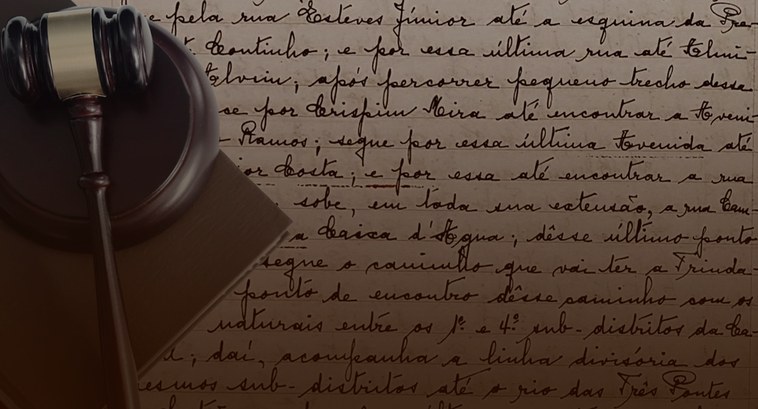 e pela rua Esteves Júnior até a esquina da Pra-
Coutinho; e por essa última rua até Almi-
Alvim; após percorrer pequeno trecho dessa
se por Crispim Mira até encontrar a Aveni-
Ramos; segue por essa última Avenida até
jor Costa; e por essa até encontrar a rua
sobe, em toda sua extensão, a rua Cam-
a Caixa d'Agua; dêsse último ponto
segue o caminho que vai ter a Trinda-
ponto de encontro dêsse caminho com os
naturais entre os 1º e 4º sub-distritos da Ca-
l; daí, acompanha a linha divisória dos
esmos sub-distritos até o rio das Três Pontes